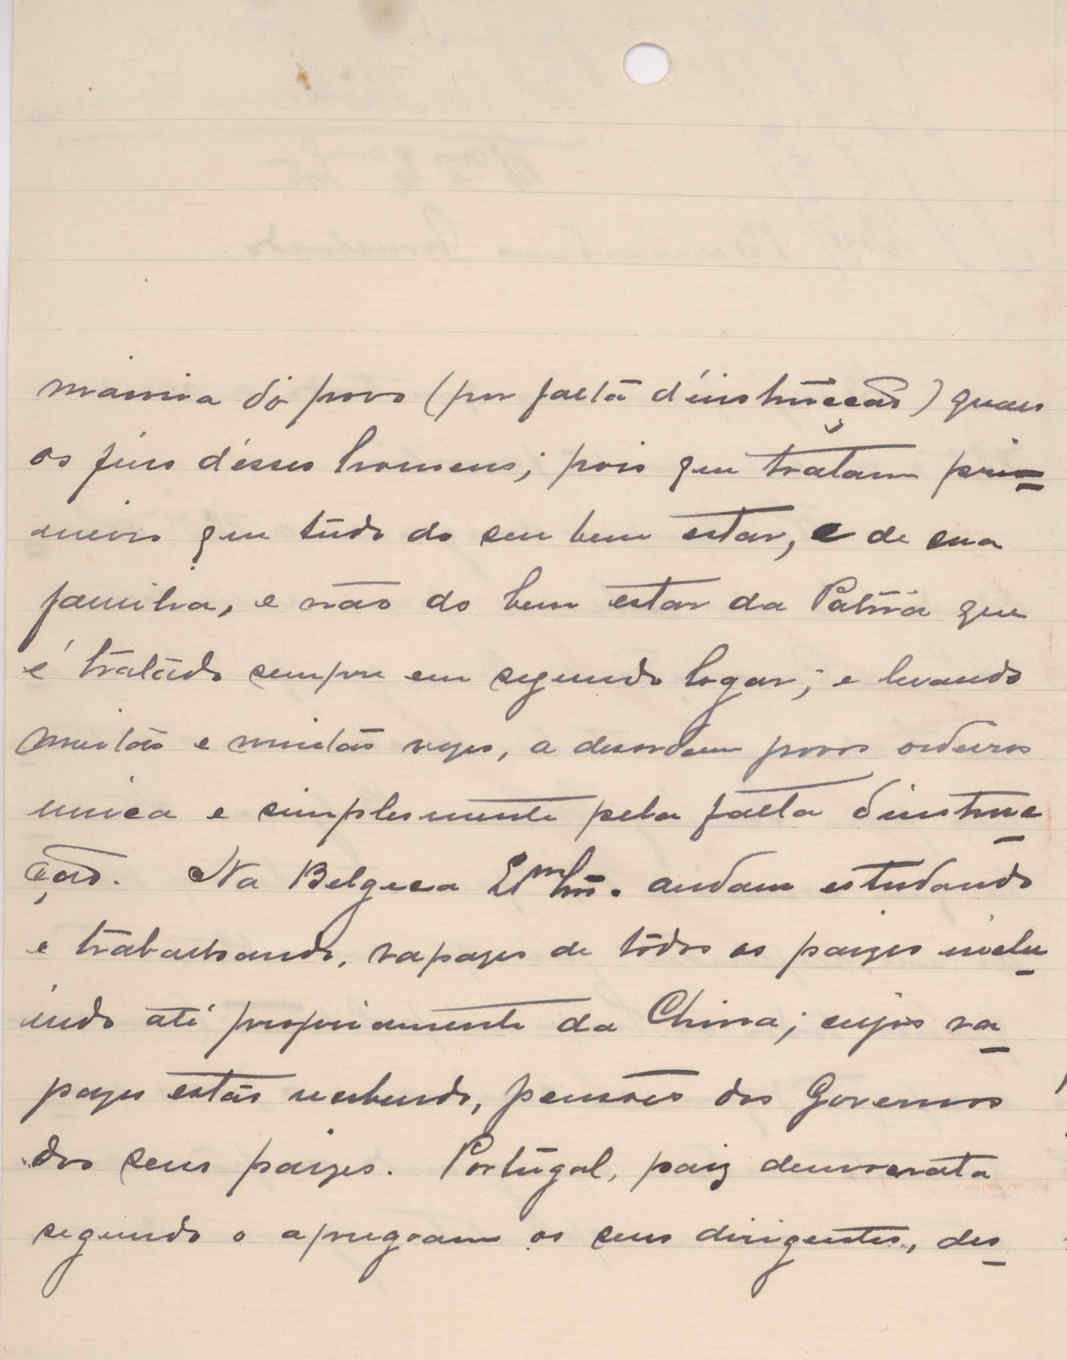 maioria do povo (por falta d'instrucção) quaes
os fins d'esses homens; pois que tratam pri-
meiro que tudo do seu bem estar, e de sua
familia, e não do bem estar da Patria que
é tratado sempre em segundo logar; e levando
muitas e muitas vezes, a desordem povos ordeiros
unica e simplesmente pela falta d'instruc-
ção. Na Belgica Exmº Snr. andam estudando
e trabalhando, rapazes de todos os paizes inclu-
indo até propriamente da China; cujos ra-
pazes estão recebendo, pensões dos Governos
dos seus paizes. Portugal, paiz democrata
segundo o apregoam os seus dirigentes, des-